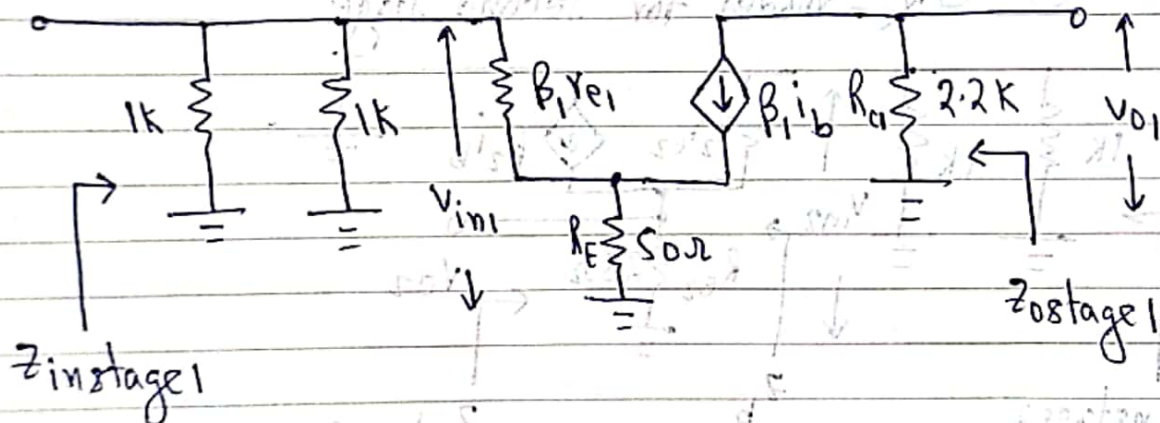 1k
1k
β₁re₁
β₁ib
Rc₁
2.2K
Vo₁
Vin₁
RE
50Ω
Zinstage1
Zostage1